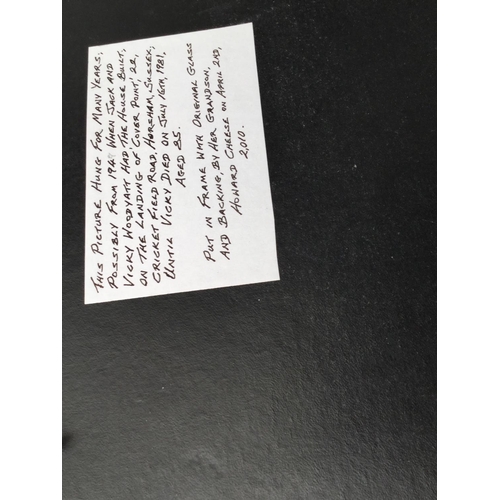 THIS PICTURE HUNG FOR MANY YEARS,
POSSIBLY FROM 194 WHEN JACK AND
VICKY WOODYATT HAD THE HOUSE BUILT,
ON THE LANDING OF 'COVER POINT,' 22,
CRICKET FIELD ROAD, HORSHAM, SUSSEX,
UNTIL VICKY DIED ON JULY 16TH, 1981,
AGED 85.
PUT IN FRAME WITH ORIGINAL GLASS
AND BACKING, BY HER GRANDSON,
HOWARD CHEESE ON APRIL 2ND,
2,010.